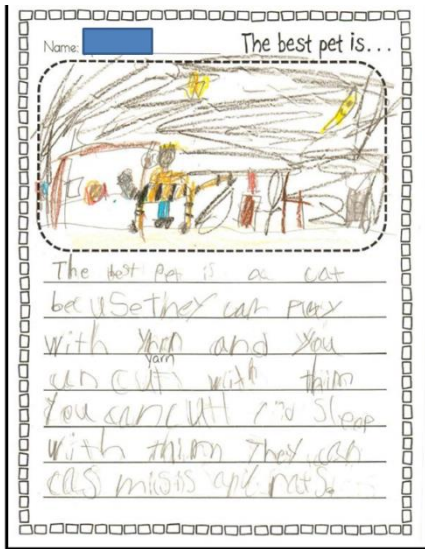 Name:
The best pet is...
The best pet is a cat
becuse they can play
with yarn and you
yarn
can cutl with thim
You can cutl and sleep
with thim They can
cas misis and rats.